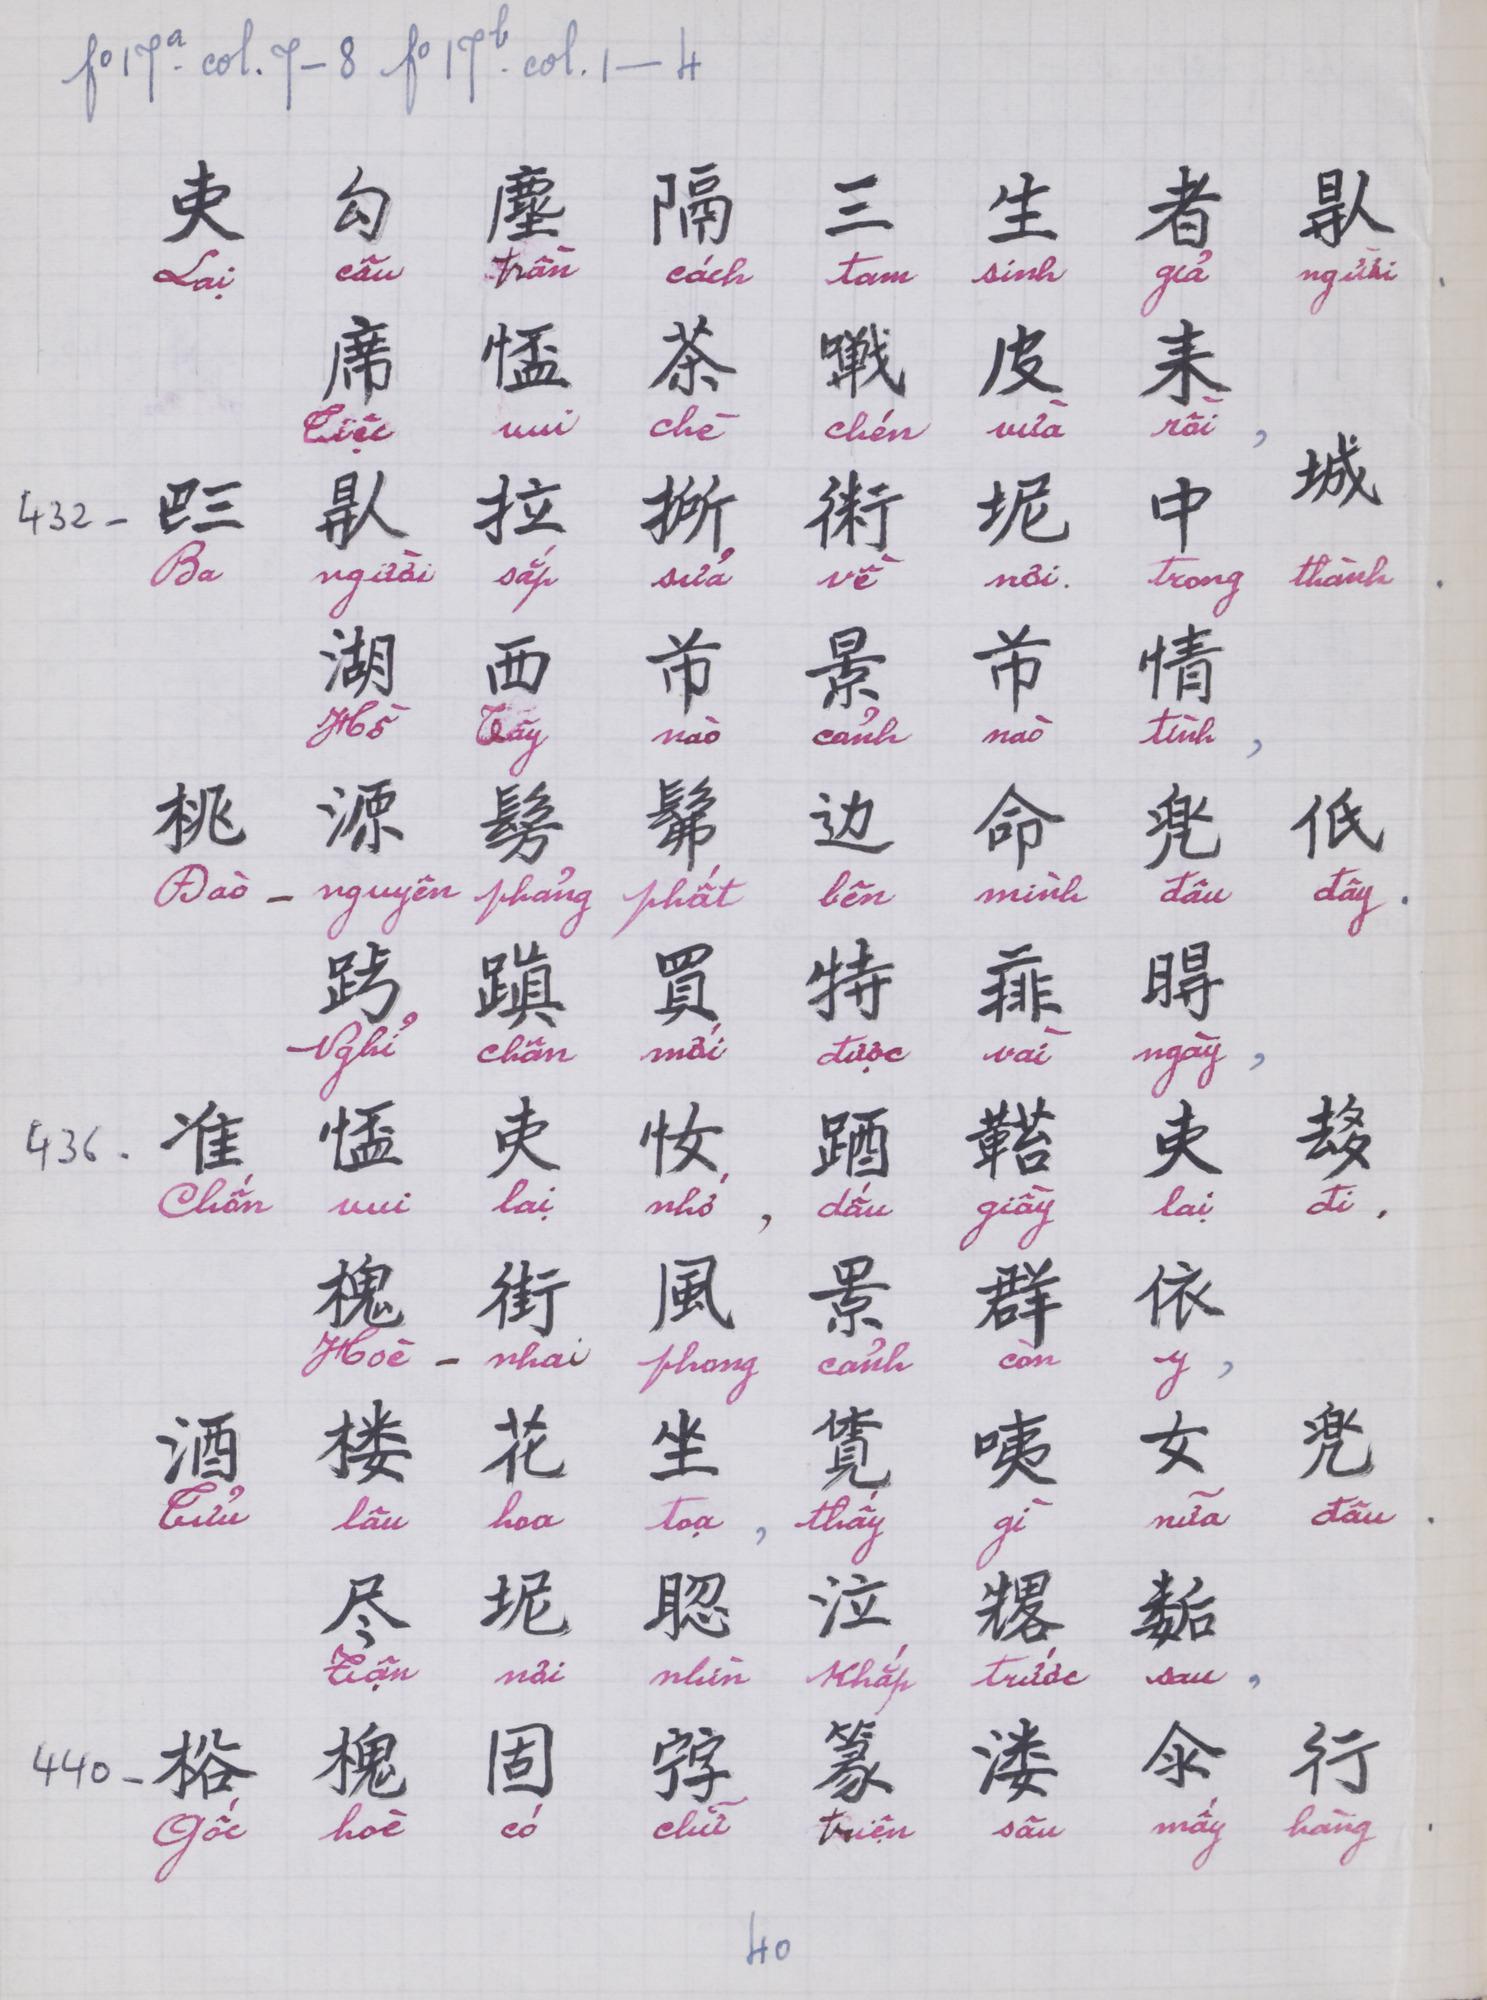 fº 17ª. col. 7-8 fº 17ᵇ. col. 1-4
吏 勾 塵 隔 三 生 者
Lại câu trần cách tam sinh giả người.
席 㤧 茶 皮 耒
Tiệc vui chè chén vừa rồi,
432- 拉 術 坭 中 城
Ba người sắp sửa về nơi. trong thành.
湖 西 芇 景 芇 情
Hồ Tây nào cảnh nào tình,
桃 源 髣 髴 边 命 兠 低
Đào - nguyên phảng phất bên mình đâu đây.
買 特
Nghỉ chân mới được vài ngày,
436. 准 㤧 吏 吏
Chốn vui lại nhớ, dấu giầy lại đi.
槐 街 風 景 群 依
Hoè - nhai phong cảnh còn y,
酒 楼 花 坐 覓 咦 女 兠
Tửu lâu hoa toạ, thấy gì nữa đâu.
尽 坭 泣
Tận nơi nhìn khắp trước sau,
440- 槐 固 篆 溇 行
Gốc hoè có chữ triện sâu mấy hàng.
40